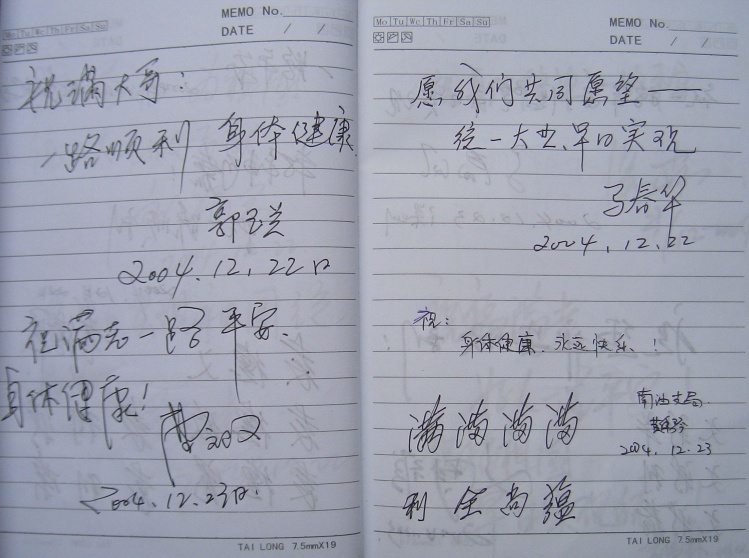 MEMO No.
Mo Tu We Th Fr Sa Su
DATE / /
祝满大哥：
一路顺利 身体健康
郭玉兰
2004.12.22日
祝满志一路平安、
身体健康！
2004.12.23日.
TAI LONG 7.5mmX19
MEMO No.
Mo Tu We Th Fr Sa Su
DATE / /
愿我们共同愿望——
统一大业早日实现
马春华
2004.12.22
祝：
身体健康、永远快乐、！
南油支局
2004.12.23
满 满 满 满
利 全 尚 疆
TAI LONG 7.5mmX19